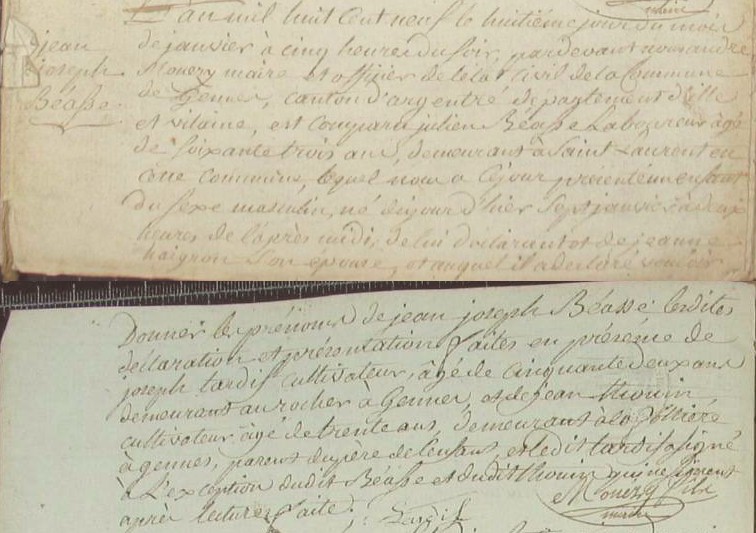 L'an mil huit cent neuf le huitième jour du mois
jean
joseph
Béasse
de janvier à cinq heures du soir, pardevant nous andré
Mouezy maire et officier de l'état Civil de la Commune
de Gennes, canton d'argentré departement d'ille
et vilaine, est comparu julien Béasse Laboureur âgé
de soixante trois ans, demeurant à Saint Laurent en
cette commune, lequel nous a cejour presenté un enfant
du sexe masculin, né dujour d'hier sept janvier à deux
heures de l'après midi, de lui déclarant et de jeanne
haigron son epouse, et auquel il a declaré vouloir
Donner les prénoms de jean joseph Béasse; lesdites
déclaration et présentation faites en présence de
joseph tardif cultivateur, âgé de cinquante deux ans
demeurant au rocher à Gennes, et de jean thouin
cultivateur âgé de trente ans, demeurant à la
à gennes, parent du père de l'enfant, et ledit tardif a signé
à L'exception dudit Béasse et dudit thouin qui ne signent
après lecture faite; Tardif
Mouezy
maire